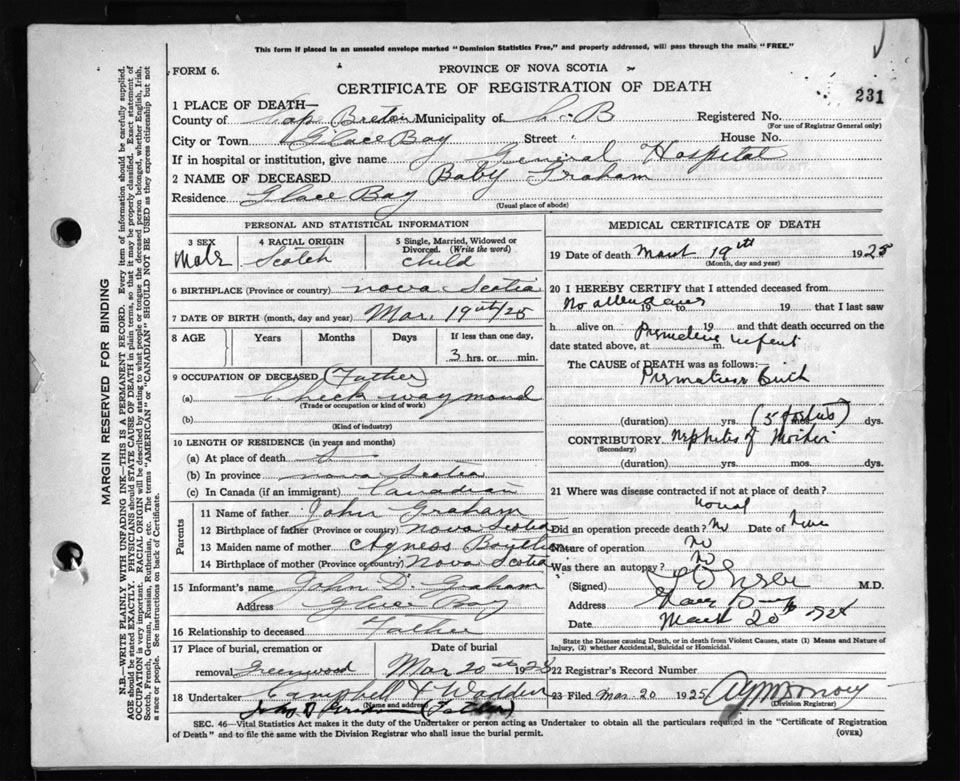 This form if placed in an unsealed envelope marked "Dominion Statistics Free," and properly addressed, will pass through the mails "FREE."
FORM 6.
PROVINCE OF NOVA SCOTIA
CERTIFICATE OF REGISTRATION OF DEATH
231
1 PLACE OF DEATH—
County of Cap Breton Municipality of C. B Registered No.
(For use of Registrar General only)
City or Town Glace Bay Street House No.
If in hospital or institution, give name General Hospital
2 NAME OF DECEASED Baby Graham
Residence Glace Bay
(Usual place of abode)
PERSONAL AND STATISTICAL INFORMATION
3 SEX 4 RACIAL ORIGIN 5 Single, Married, Widowed or Divorced. (Write the word)
Male Scotch child
6 BIRTHPLACE (Province or country) Nova Scotia
7 DATE OF BIRTH (month, day and year) Mar. 19th/25
8 AGE Years Months Days If less than one day,
3 hrs. or min.
9 OCCUPATION OF DECEASED (Father)
(a) Check
(Trade or occupation or kind of work)
(b)
(Kind of industry)
10 LENGTH OF RESIDENCE (in years and months)
(a) At place of death
(b) In province Nova Scotia
(c) In Canada (if an immigrant) Canadian
Parents
11 Name of father John Graham
12 Birthplace of father (Province or country) Nova Scotia
13 Maiden name of mother Agness
14 Birthplace of mother (Province or country) Nova Scotia
15 Informant's name John D. Graham
Address Glace Bay
16 Relationship to deceased Father
17 Place of burial, cremation or removal Greenwood
Date of burial
Mar 20th 1925
18 Undertaker Campbell & Wadden
Name and address
(Father)
MEDICAL CERTIFICATE OF DEATH
19 Date of death March 19th 1925
(Month, day and year)
20 I HEREBY CERTIFY that I attended deceased from
No attendance 19 to 19 that I last saw
h alive on 19 and that death occurred on the
date stated above, at m. infant
The CAUSE OF DEATH was as follows:
Premature Birth
(duration) yrs. mos. dys.
CONTRIBUTORY Nephritis of Mother
(Secondary)
(duration) yrs. mos. dys.
21 Where was disease contracted if not at place of death?
Did an operation precede death? No Date of
Nature of operation No
Was there an autopsy? No
(Signed) M.D.
Address Glace Bay
Date March 20th
State the Disease causing Death, or in death from Violent Causes, state (1) Means and Nature of
Injury, (2) whether Accidental, Suicidal or Homicidal.
22 Registrar's Record Number
23 Filed Mar. 20 1925
(Division Registrar)
SEC. 46—Vital Statistics Act makes it the duty of the Undertaker or person acting as Undertaker to obtain all the particulars required in the "Certificate of Registration
of Death" and to file the same with the Division Registrar who shall issue the burial permit.
(OVER)
MARGIN RESERVED FOR BINDING
N.B.—WRITE PLAINLY WITH UNFADING INK—THIS IS A PERMANENT RECORD. Every item of information should be carefully supplied.
AGE should be stated EXACTLY. PHYSICIANS should STATE CAUSE OF DEATH in plain terms, so that it may be properly classified. Exact statement of
OCCUPATION is very important. RACIAL ORIGIN will be described by stating to what people or tongue the deceased person belonged, whether English, Irish,
Scotch, French, German, Russian, Ruthenian, etc. The terms "AMERICAN" or "CANADIAN" SHOULD NOT BE USED as they express citizenship but not
a race or people. See instructions on back of Certificate.